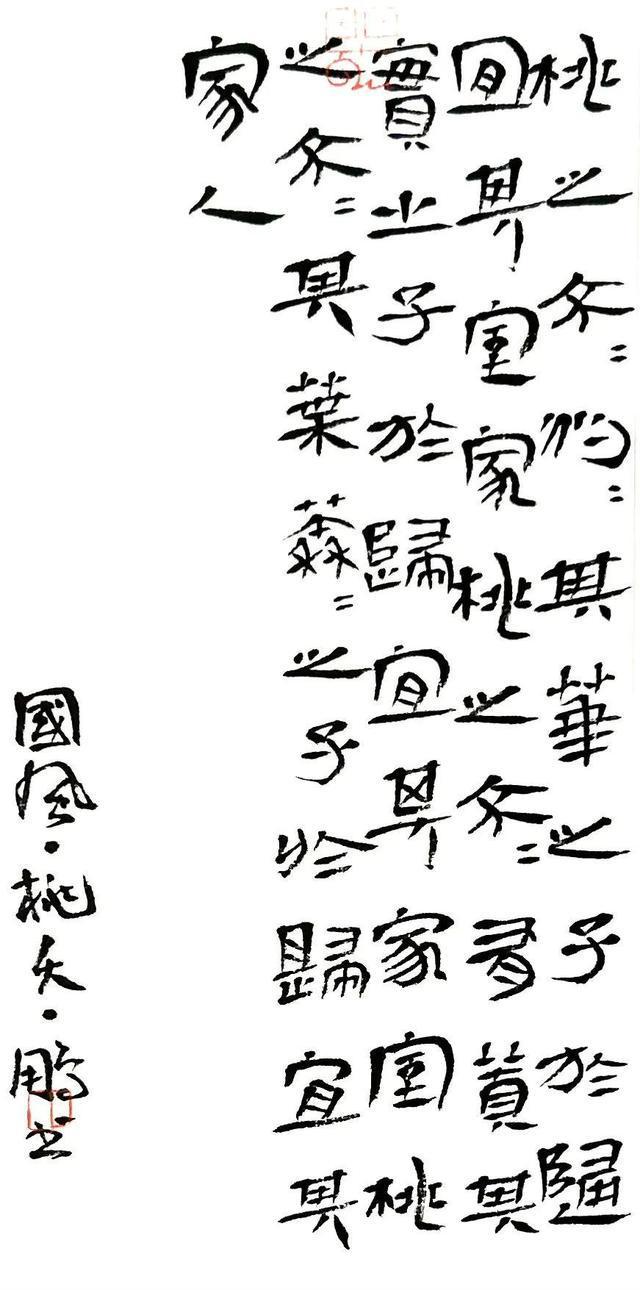 桃之夭〻灼〻其華之子於歸
宜其室家桃之夭〻有蕡其
實之子於歸宜其家室桃
之夭〻其葉蓁〻之子於歸宜其
家人
國風·桃夭·鵬書